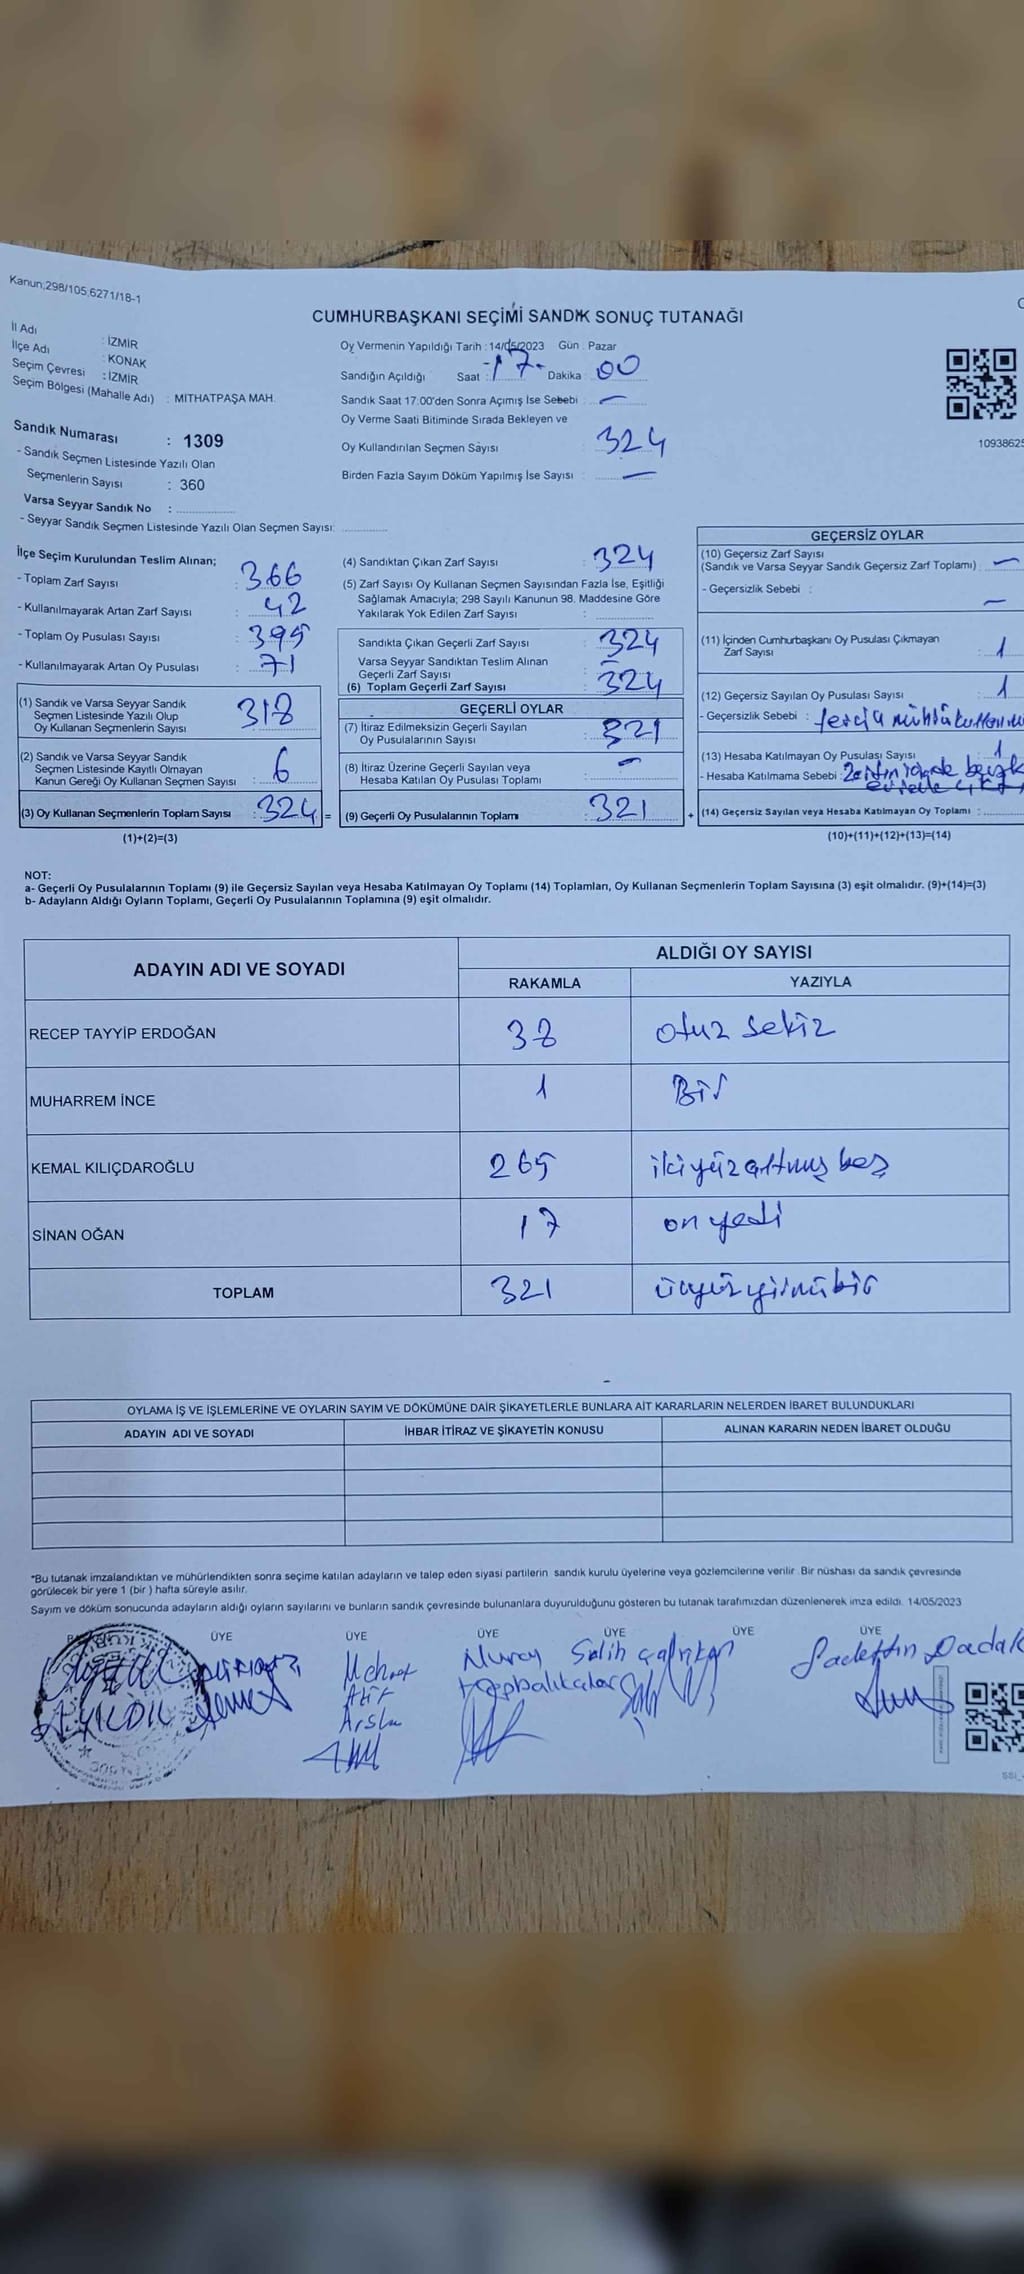 Kanun;298/105,6271/18-1
CUMHURBAŞKANI SEÇİMİ SANDIK SONUÇ TUTANAĞI
İl Adı : İZMİR
İlçe Adı : KONAK
Seçim Çevresi : İZMİR
Seçim Bölgesi (Mahalle Adı) : MITHATPAŞA MAH.
Sandık Numarası : 1309
- Sandık Seçmen Listesinde Yazılı Olan
Seçmenlerin Sayısı : 360
Varsa Seyyar Sandık No :
- Seyyar Sandık Seçmen Listesinde Yazılı Olan Seçmen Sayısı:
Oy Vermenin Yapıldığı Tarih : 14/05/2023 Gün : Pazar
Sandığın Açıldığı Saat : 17 Dakika : 00
Sandık Saat 17:00'den Sonra Açımış İse Sebebi : —
Oy Verme Saati Bitiminde Sırada Bekleyen ve
Oy Kullandırılan Seçmen Sayısı : 324
Birden Fazla Sayım Döküm Yapılmış İse Sayısı : —
1093862
İlçe Seçim Kurulundan Teslim Alınan;
- Toplam Zarf Sayısı : 366
- Kullanılmayarak Artan Zarf Sayısı : 42
- Toplam Oy Pusulası Sayısı : 395
- Kullanılmayarak Artan Oy Pusulası : 71
(1) Sandık ve Varsa Seyyar Sandık
Seçmen Listesinde Yazılı Olup
Oy Kullanan Seçmenlerin Sayısı : 318
(2) Sandık ve Varsa Seyyar Sandık
Seçmen Listesinde Kayıtlı Olmayan
Kanun Gereği Oy Kullanan Seçmen Sayısı : 6
(3) Oy Kullanan Seçmenlerin Toplam Sayısı : 324 =
(1)+(2)=(3)
(4) Sandıktan Çıkan Zarf Sayısı : 324
(5) Zarf Sayısı Oy Kullanan Seçmen Sayısından Fazla İse, Eşitliği
Sağlamak Amacıyla; 298 Sayılı Kanunun 98. Maddesine Göre
Yakılarak Yok Edilen Zarf Sayısı :
Sandıkta Çıkan Geçerli Zarf Sayısı : 324
Varsa Seyyar Sandıktan Teslim Alınan
Geçerli Zarf Sayısı : —
(6) Toplam Geçerli Zarf Sayısı : 324
GEÇERLİ OYLAR
(7) İtiraz Edilmeksizin Geçerli Sayılan
Oy Pusulalarının Sayısı : 321
(8) İtiraz Üzerine Geçerli Sayılan veya
Hesaba Katılan Oy Pusulası Toplamı : —
(9) Geçerli Oy Pusulalarının Toplamı : 321 +
GEÇERSİZ OYLAR
(10) Geçersiz Zarf Sayısı
(Sandık ve Varsa Seyyar Sandık Geçersiz Zarf Toplamı) : —
- Geçersizlik Sebebi : —
(11) İçinden Cumhurbaşkanı Oy Pusulası Çıkmayan
Zarf Sayısı : 1
(12) Geçersiz Sayılan Oy Pusulası Sayısı : 1
- Geçersizlik Sebebi :
(13) Hesaba Katılmayan Oy Pusulası Sayısı : 1
- Hesaba Katılmama Sebebi :
(14) Geçersiz Sayılan veya Hesaba Katılmayan Oy Toplamı :
(10)+(11)+(12)+(13)=(14)
NOT:
a- Geçerli Oy Pusulalarının Toplamı (9) ile Geçersiz Sayılan veya Hesaba Katılmayan Oy Toplamı (14) Toplamları, Oy Kullanan Seçmenlerin Toplam Sayısına (3) eşit olmalıdır. (9)+(14)=(3)
b- Adayların Aldığı Oyların Toplamı, Geçerli Oy Pusulalarının Toplamına (9) eşit olmalıdır.
ADAYIN ADI VE SOYADI ALDIĞI OY SAYISI
RAKAMLA YAZIYLA
RECEP TAYYİP ERDOĞAN 38 otuz sekiz
MUHARREM İNCE 1 Bir
KEMAL KILIÇDAROĞLU 265 ikiyüzaltmış beş
SİNAN OĞAN 17 on yedi
TOPLAM 321 üçyüzyirmibir
OYLAMA İŞ VE İŞLEMLERİNE VE OYLARIN SAYIM VE DÖKÜMÜNE DAİR ŞİKAYETLERLE BUNLARA AİT KARARLARIN NELERDEN İBARET BULUNDUKLARI
ADAYIN ADI VE SOYADI İHBAR İTİRAZ VE ŞİKAYETİN KONUSU ALINAN KARARIN NEDEN İBARET OLDUĞU
*Bu tutanak imzalandıktan ve mühürlendikten sonra seçime katılan adayların ve talep eden siyasi partilerin sandık kurulu üyelerine veya gözlemcilerine verilir. Bir nüshası da sandık çevresinde
görülecek bir yere 1 (bir ) hafta süreyle asılır.
Sayım ve döküm sonucunda adayların aldığı oyların sayılarını ve bunların sandık çevresinde bulunanlara duyurulduğunu gösteren bu tutanak tarafımızdan düzenlenerek imza edildi. 14/05/2023
ÜYE ÜYE ÜYE ÜYE ÜYE ÜYE
Mehmet
Arslan
Nuray
Salih Çalışkan
Sadettin Dadak